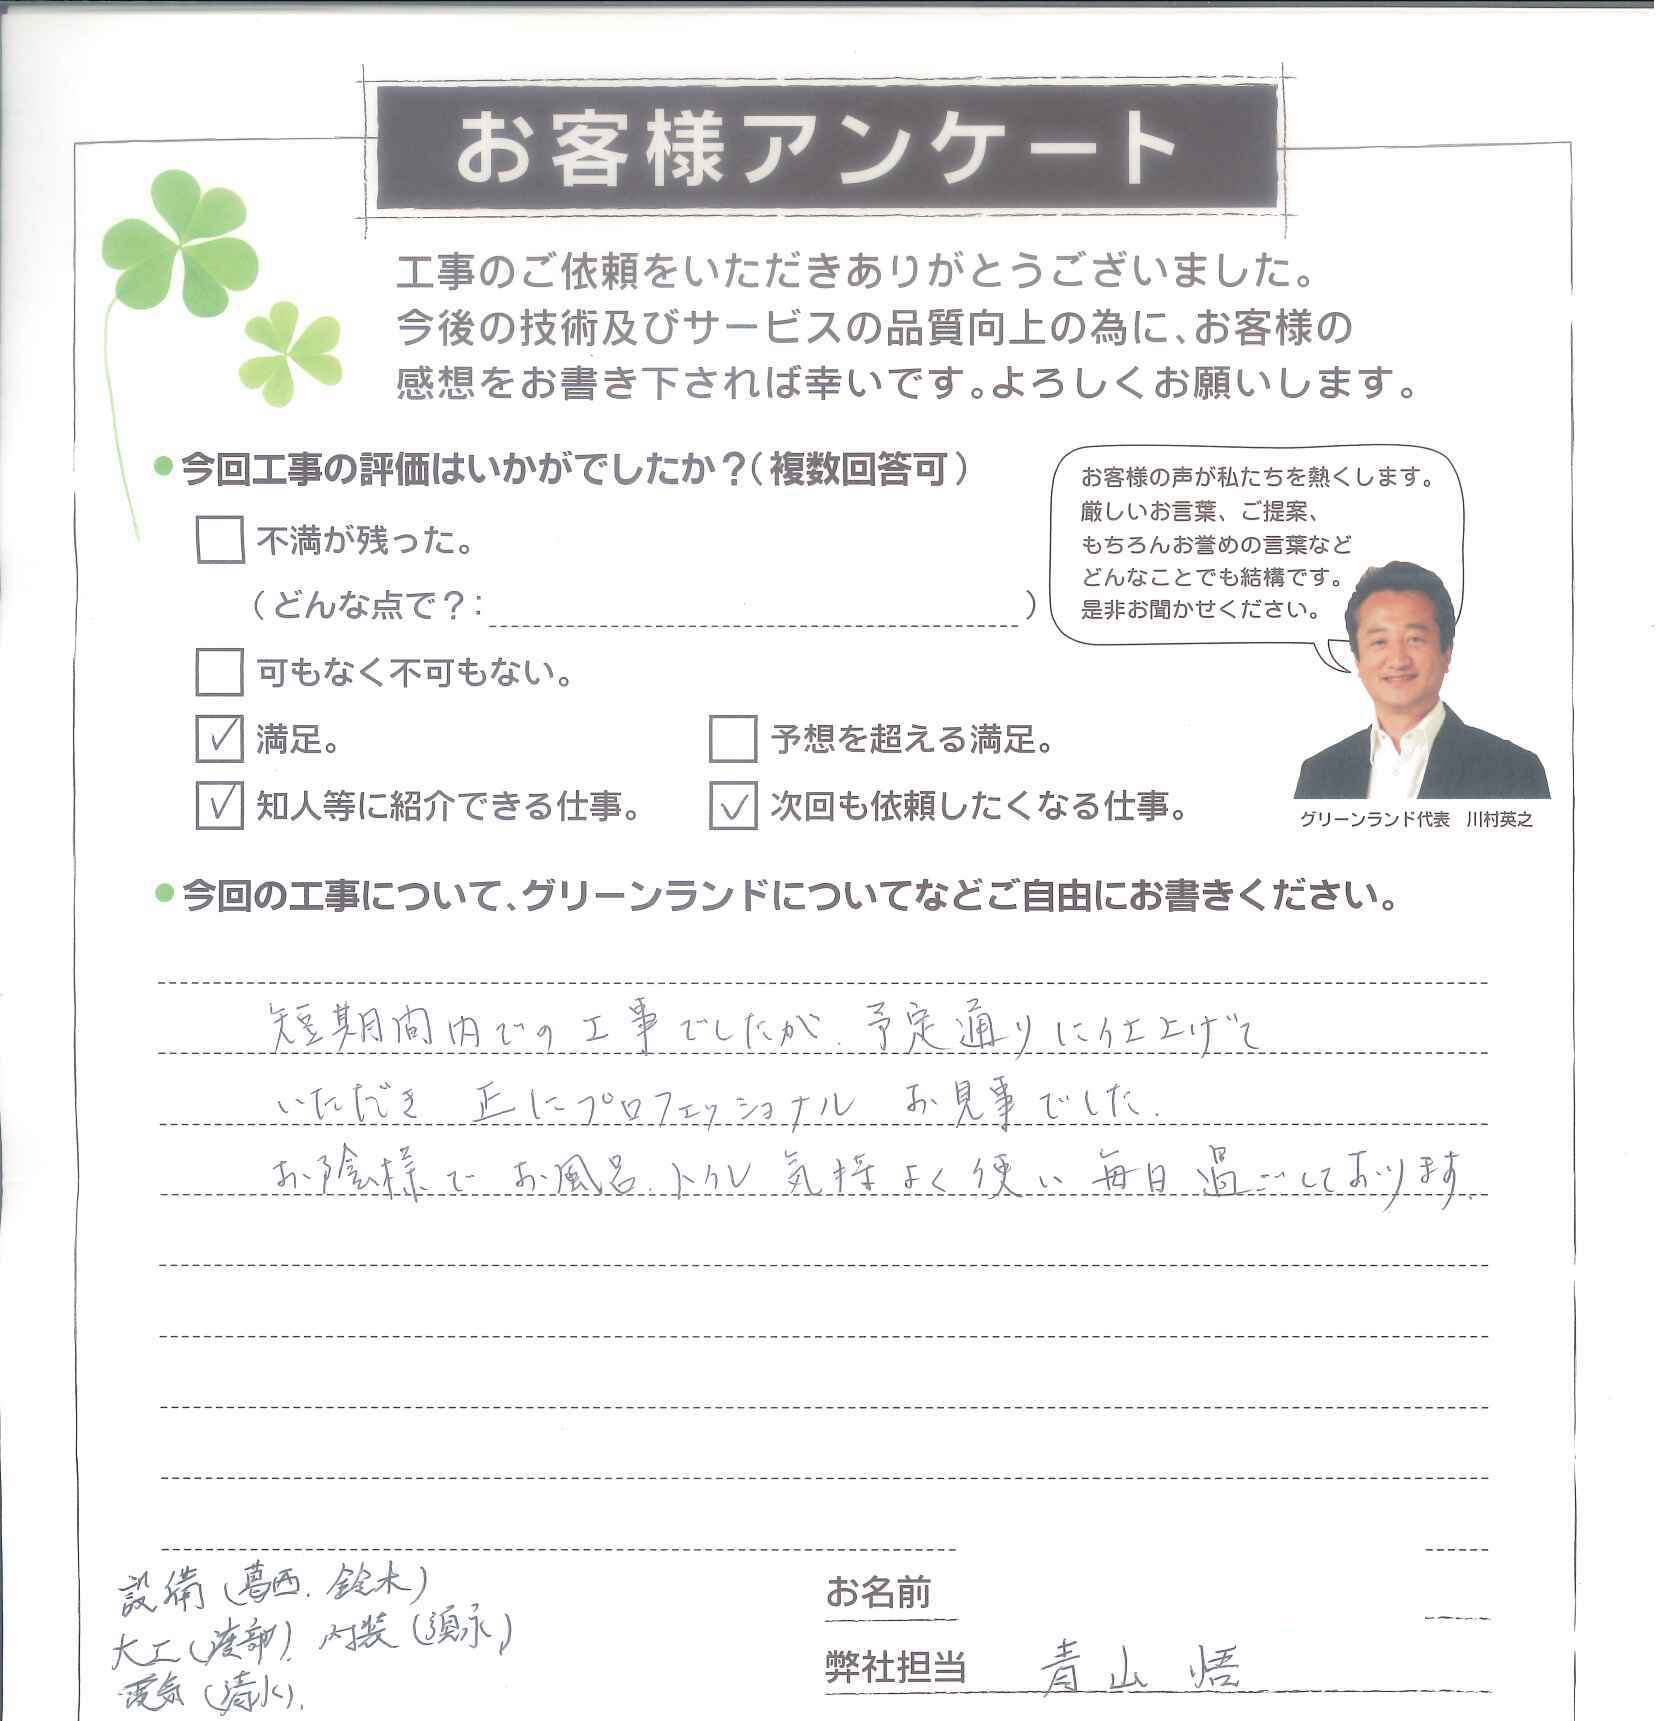 お客様アンケート
工事のご依頼をいただきありがとうございました。
今後の技術及びサービスの品質向上の為に、お客様の
感想をお書き下されば幸いです。よろしくお願いします。
●今回工事の評価はいかがでしたか？（複数回答可）
不満が残った。
（どんな点で？：　　　）
可もなく不可もない。
✓ 満足。
予想を超える満足。
✓ 知人等に紹介できる仕事。
✓ 次回も依頼したくなる仕事。
お客様の声が私たちを熱くします。
厳しいお言葉、ご提案、
もちろんお誉めの言葉など
どんなことでも結構です。
是非お聞かせください。
グリーンランド代表　川村英之
●今回の工事について、グリーンランドについてなどご自由にお書きください。
短期間内での工事でしたが、予定通りに仕上げて
いただき 正にプロフェッショナル お見事でした.
お陰様で お風呂、トイレ 気持よく使い 毎日過ごしております.
設備（葛西、鈴木）
大工（渡部）、内装（須永）
電気（清水）.
お名前
弊社担当　青山 悟